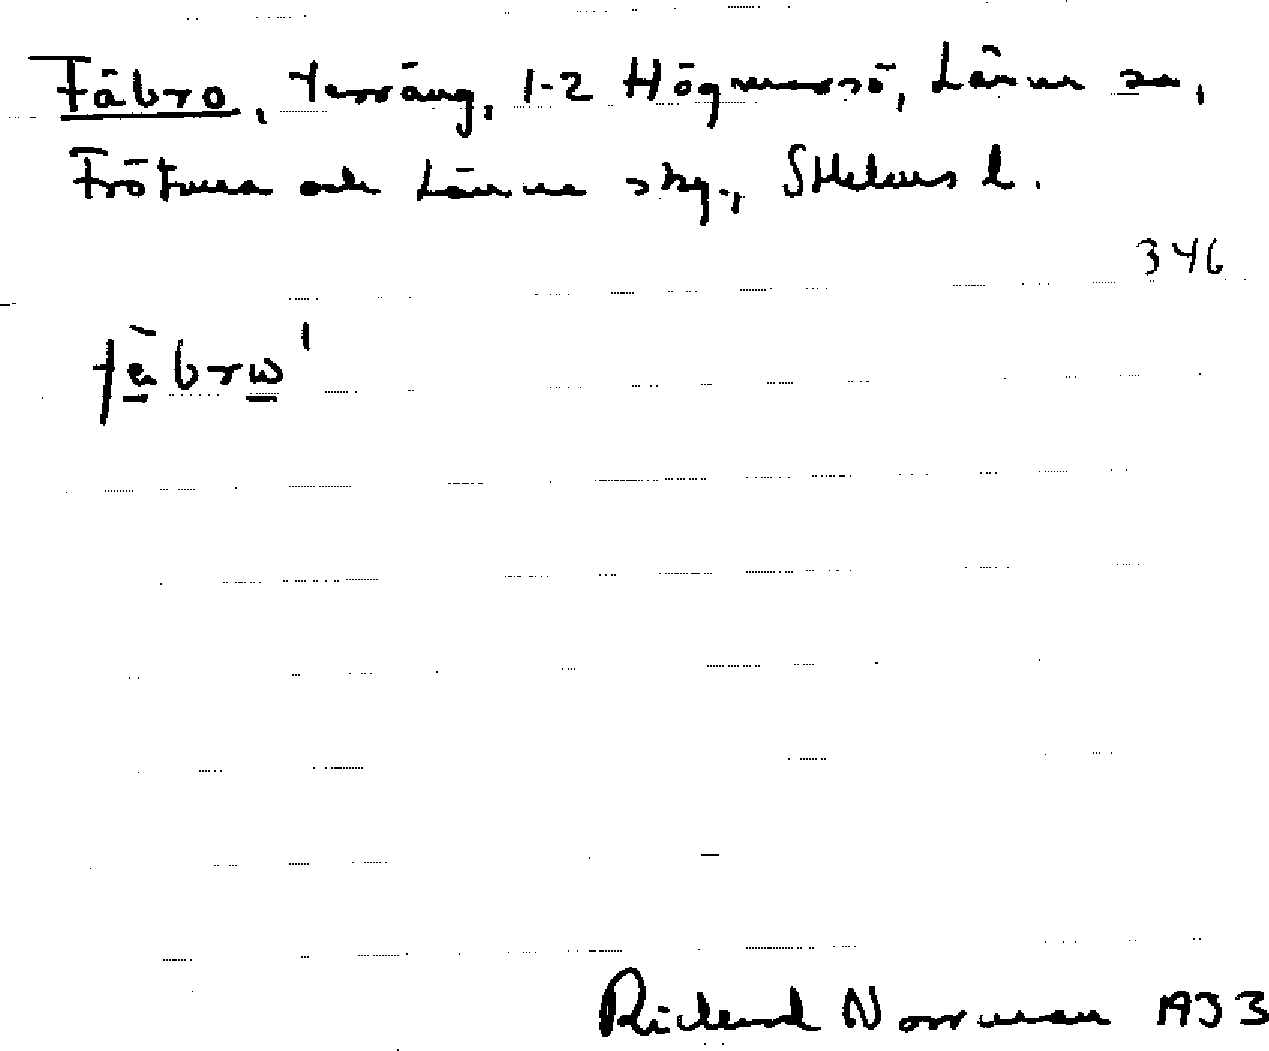 Fäbro, terräng, 1-2 Högmarsö, Länna sn,
Frötuna och Länna skg., Sthlms l.
346
Richard Norrman 1933